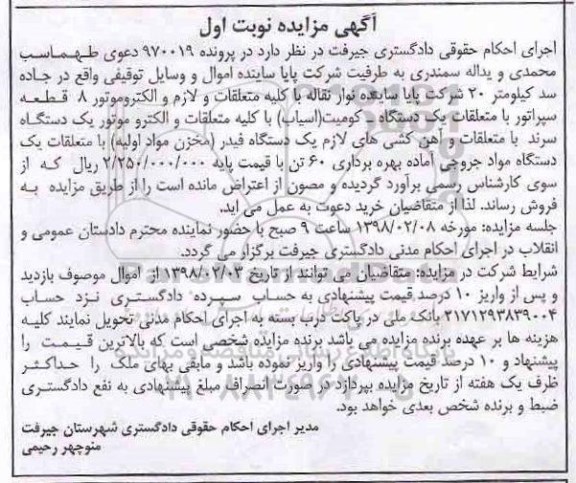 آگهی مزایده نوبت اول
اجرای احکام حقوقی دادگستری جیرفت در نظر دارد در پرونده ۹۷۰۰۱۹ دعوی طهماسب
محمدی و یداله سمندری به طرفیت شرکت پایا ساینده اموال و وسایل توقیفی واقع در جاده
سد کیلومتر ۲۰ شرکت پایا ساینده نوار نقاله با کلیه متعلقات و لازم و الکتروموتور ۸ قطعه
سپراتور با متعلقات یک دستگاه کومیت(اسیاب) با کلیه متعلقات و الکترو موتور یک دستگاه
سرند با متعلقات و آهن کشی های لازم یک دستگاه فیدر (مخزن مواد اولیه) با متعلقات یک
دستگاه مواد خروجی آماده بهره برداری ۶۰ تن با قیمت پایه ۲/۲۵۰/۰۰۰/۰۰۰ ریال که از
سوی کارشناس رسمی برآورد گردیده و مصون از اعتراض مانده است را از طریق مزایده به
فروش رساند. لذا از متقاضیان خرید دعوت به عمل می اید.
جلسه مزایده: مورخه ۱۳۹۸/۰۲/۰۸ ساعت ۹ صبح با حضور نماینده محترم دادستان عمومی و
انقلاب در اجرای احکام مدنی دادگستری جیرفت برگزار می گردد.
شرایط شرکت در مزایده: متقاضیان می توانند از تاریخ ۱۳۹۸/۰۲/۰۳ از اموال موصوف بازدید
و پس از واریز ۱۰ درصد قیمت پیشنهادی به حساب سپرده دادگستری نزد حساب
۲۱۷۱۲۹۳۸۳۹۰۰۴ بانک ملی در پاکت درب بسته به اجرای احکام مدنی تحویل نمایند کلیه
هزینه ها بر عهده برنده مزایده می باشد برنده مزایده شخصی است که بالاترین قیمت را
پیشنهاد و ۱۰ درصد قیمت پیشنهادی را واریز نموده باشد و مابقی بهای ملک را حداکثر
ظرف یک هفته از تاریخ مزایده بپردازد در صورت انصراف مبلغ پیشنهادی به نفع دادگستری
ضبط و برنده شخص بعدی خواهد بود.
مدیر اجرای احکام حقوقی دادگستری شهرستان جیرفت
منوچهر رحیمی